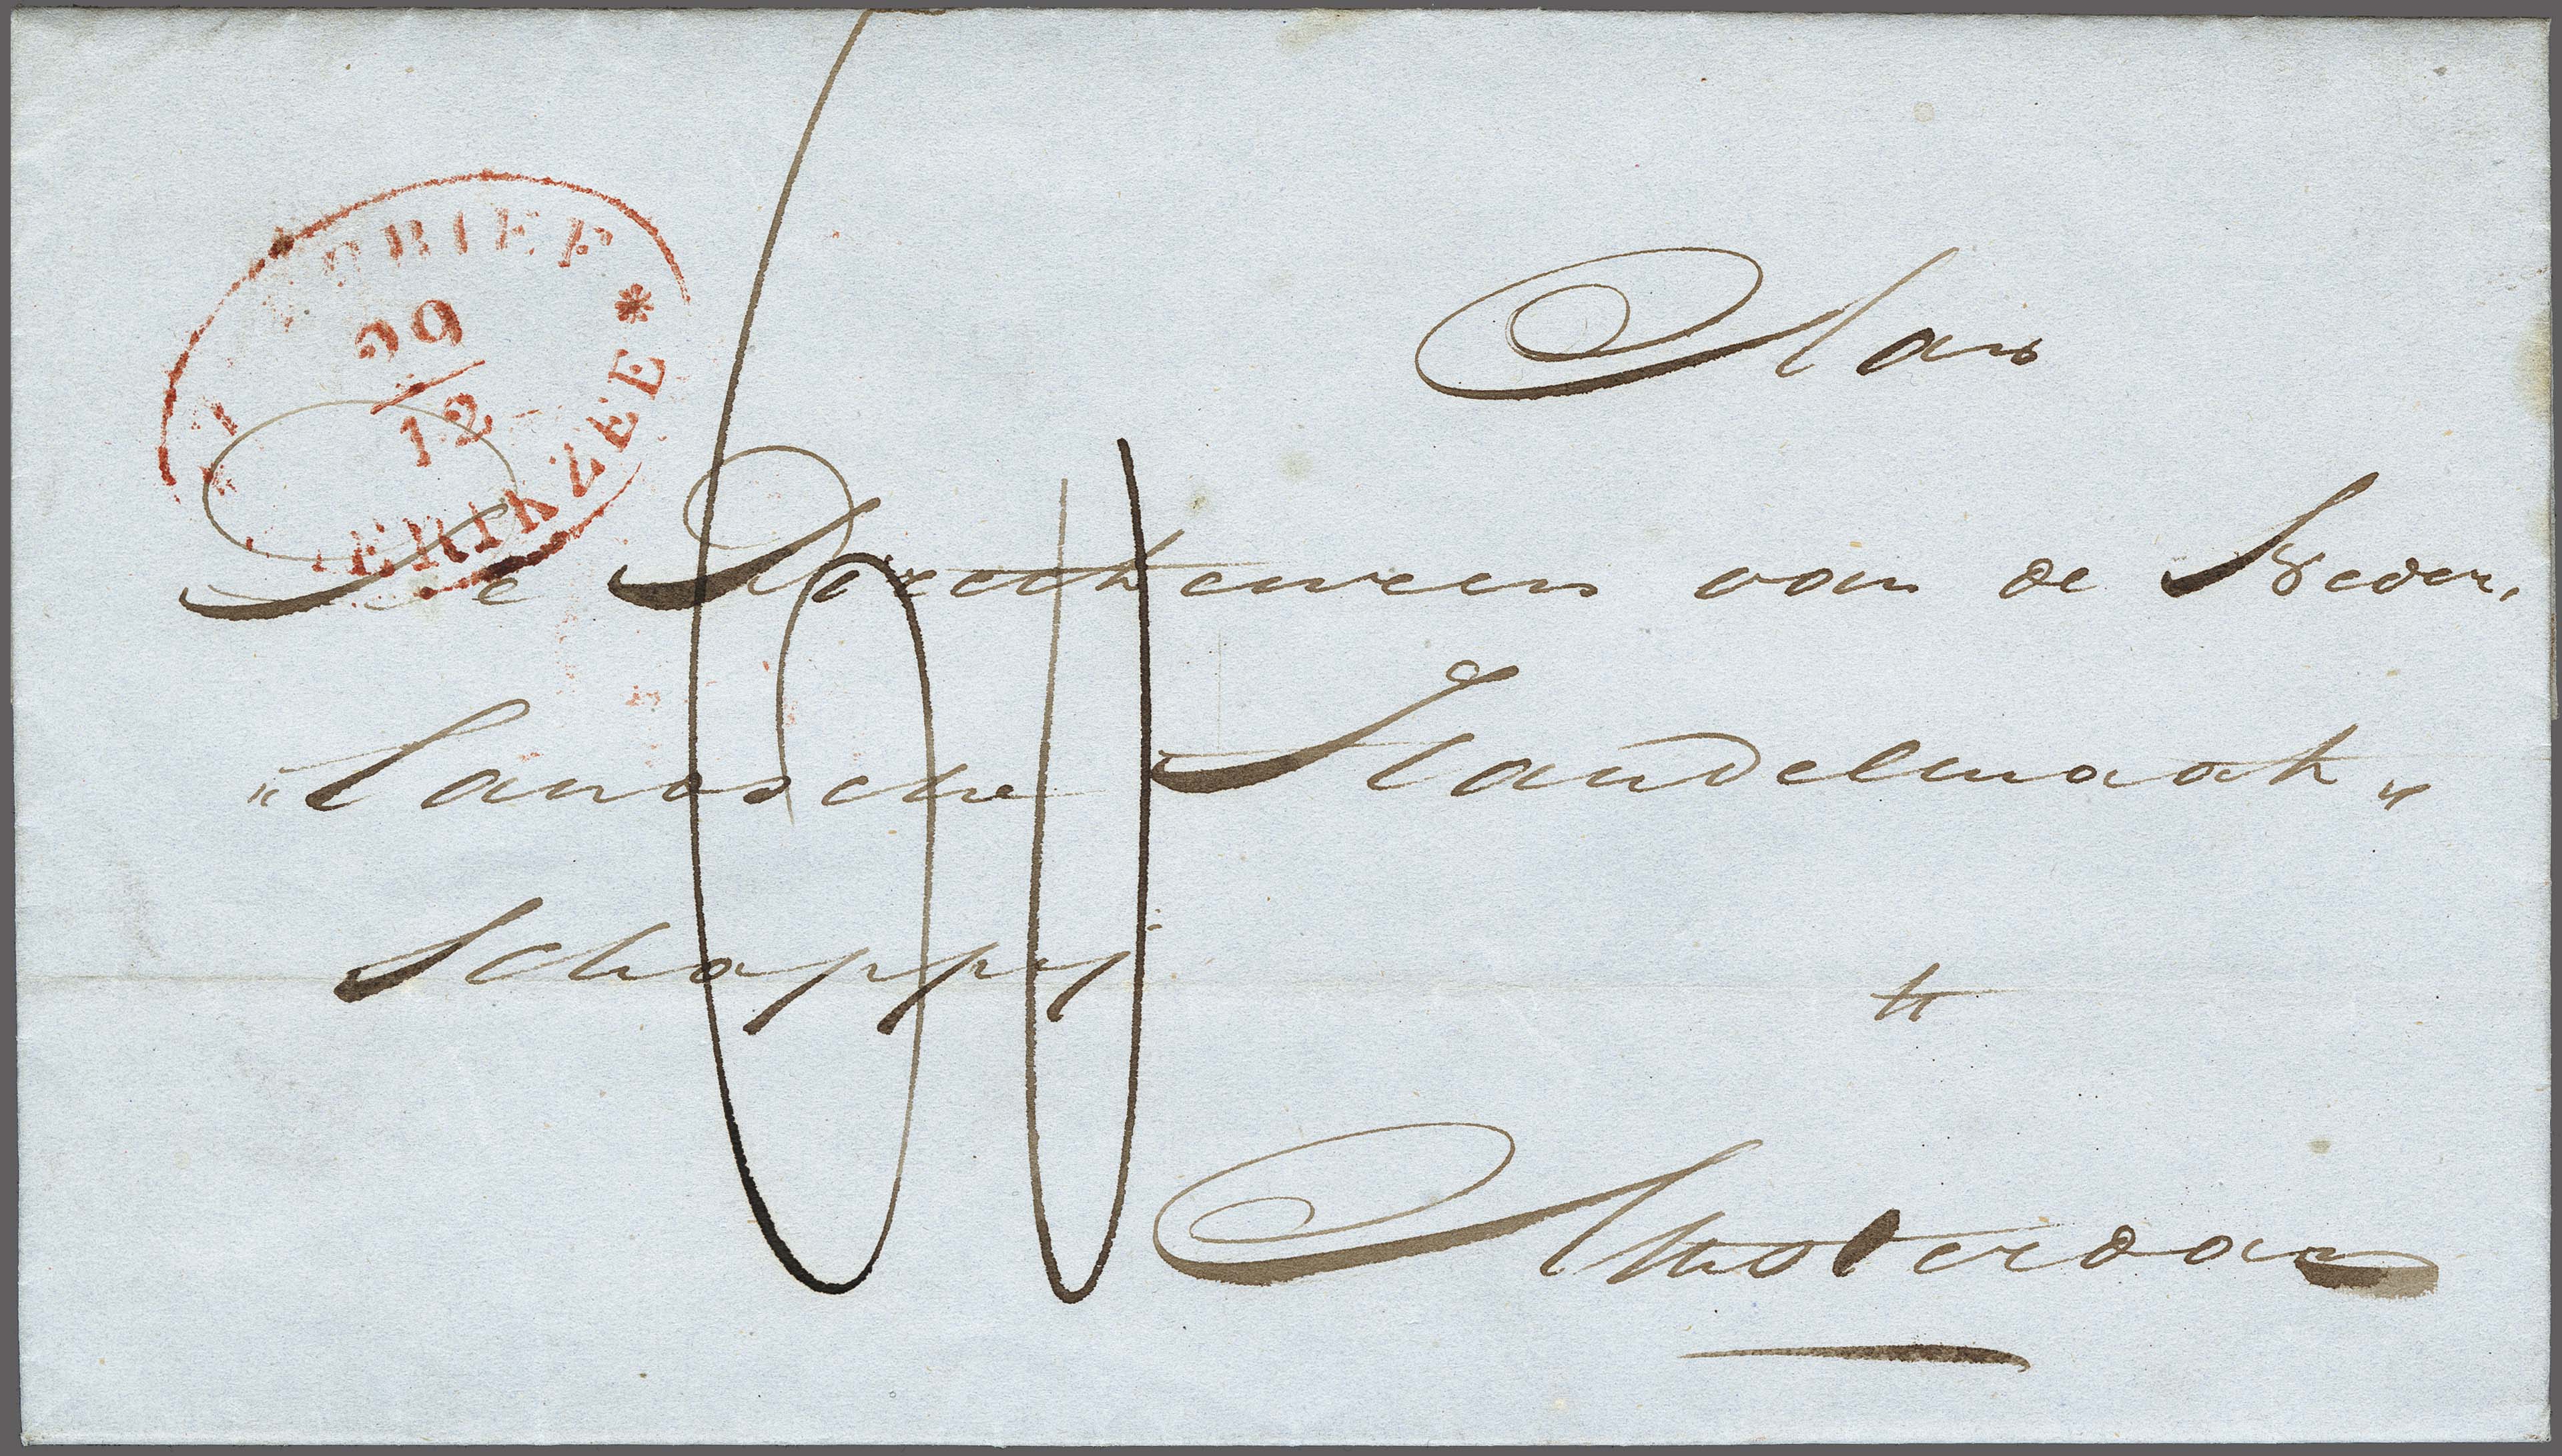 BRIEF
29
12
ERIKZEE *
Aan
De Directeuren van de Neder,
„landsche Handelmaat„
schappij
te
Amsterdam